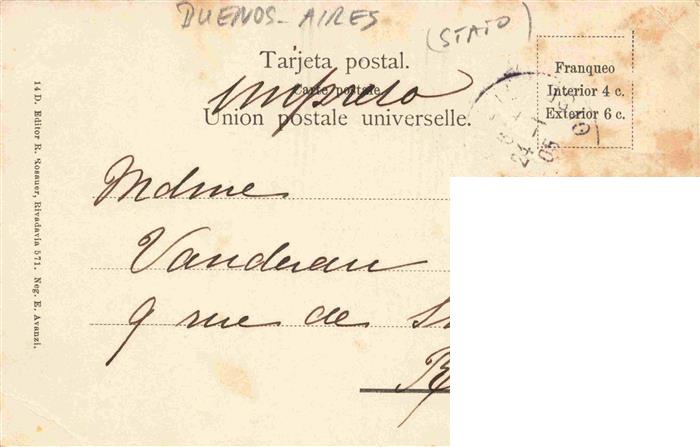 BUENOS-AIRES
(STATO)
Tarjeta postal.
Carte postale
impreso
Union postale universelle.
Franqueo
Interior 4 c.
Exterior 6 c.
24
05
Mdme
Vanderau
9 rue de
14 D. Editor R. Rosauer, Rivadavia 571. Neg. E. Avanzi.